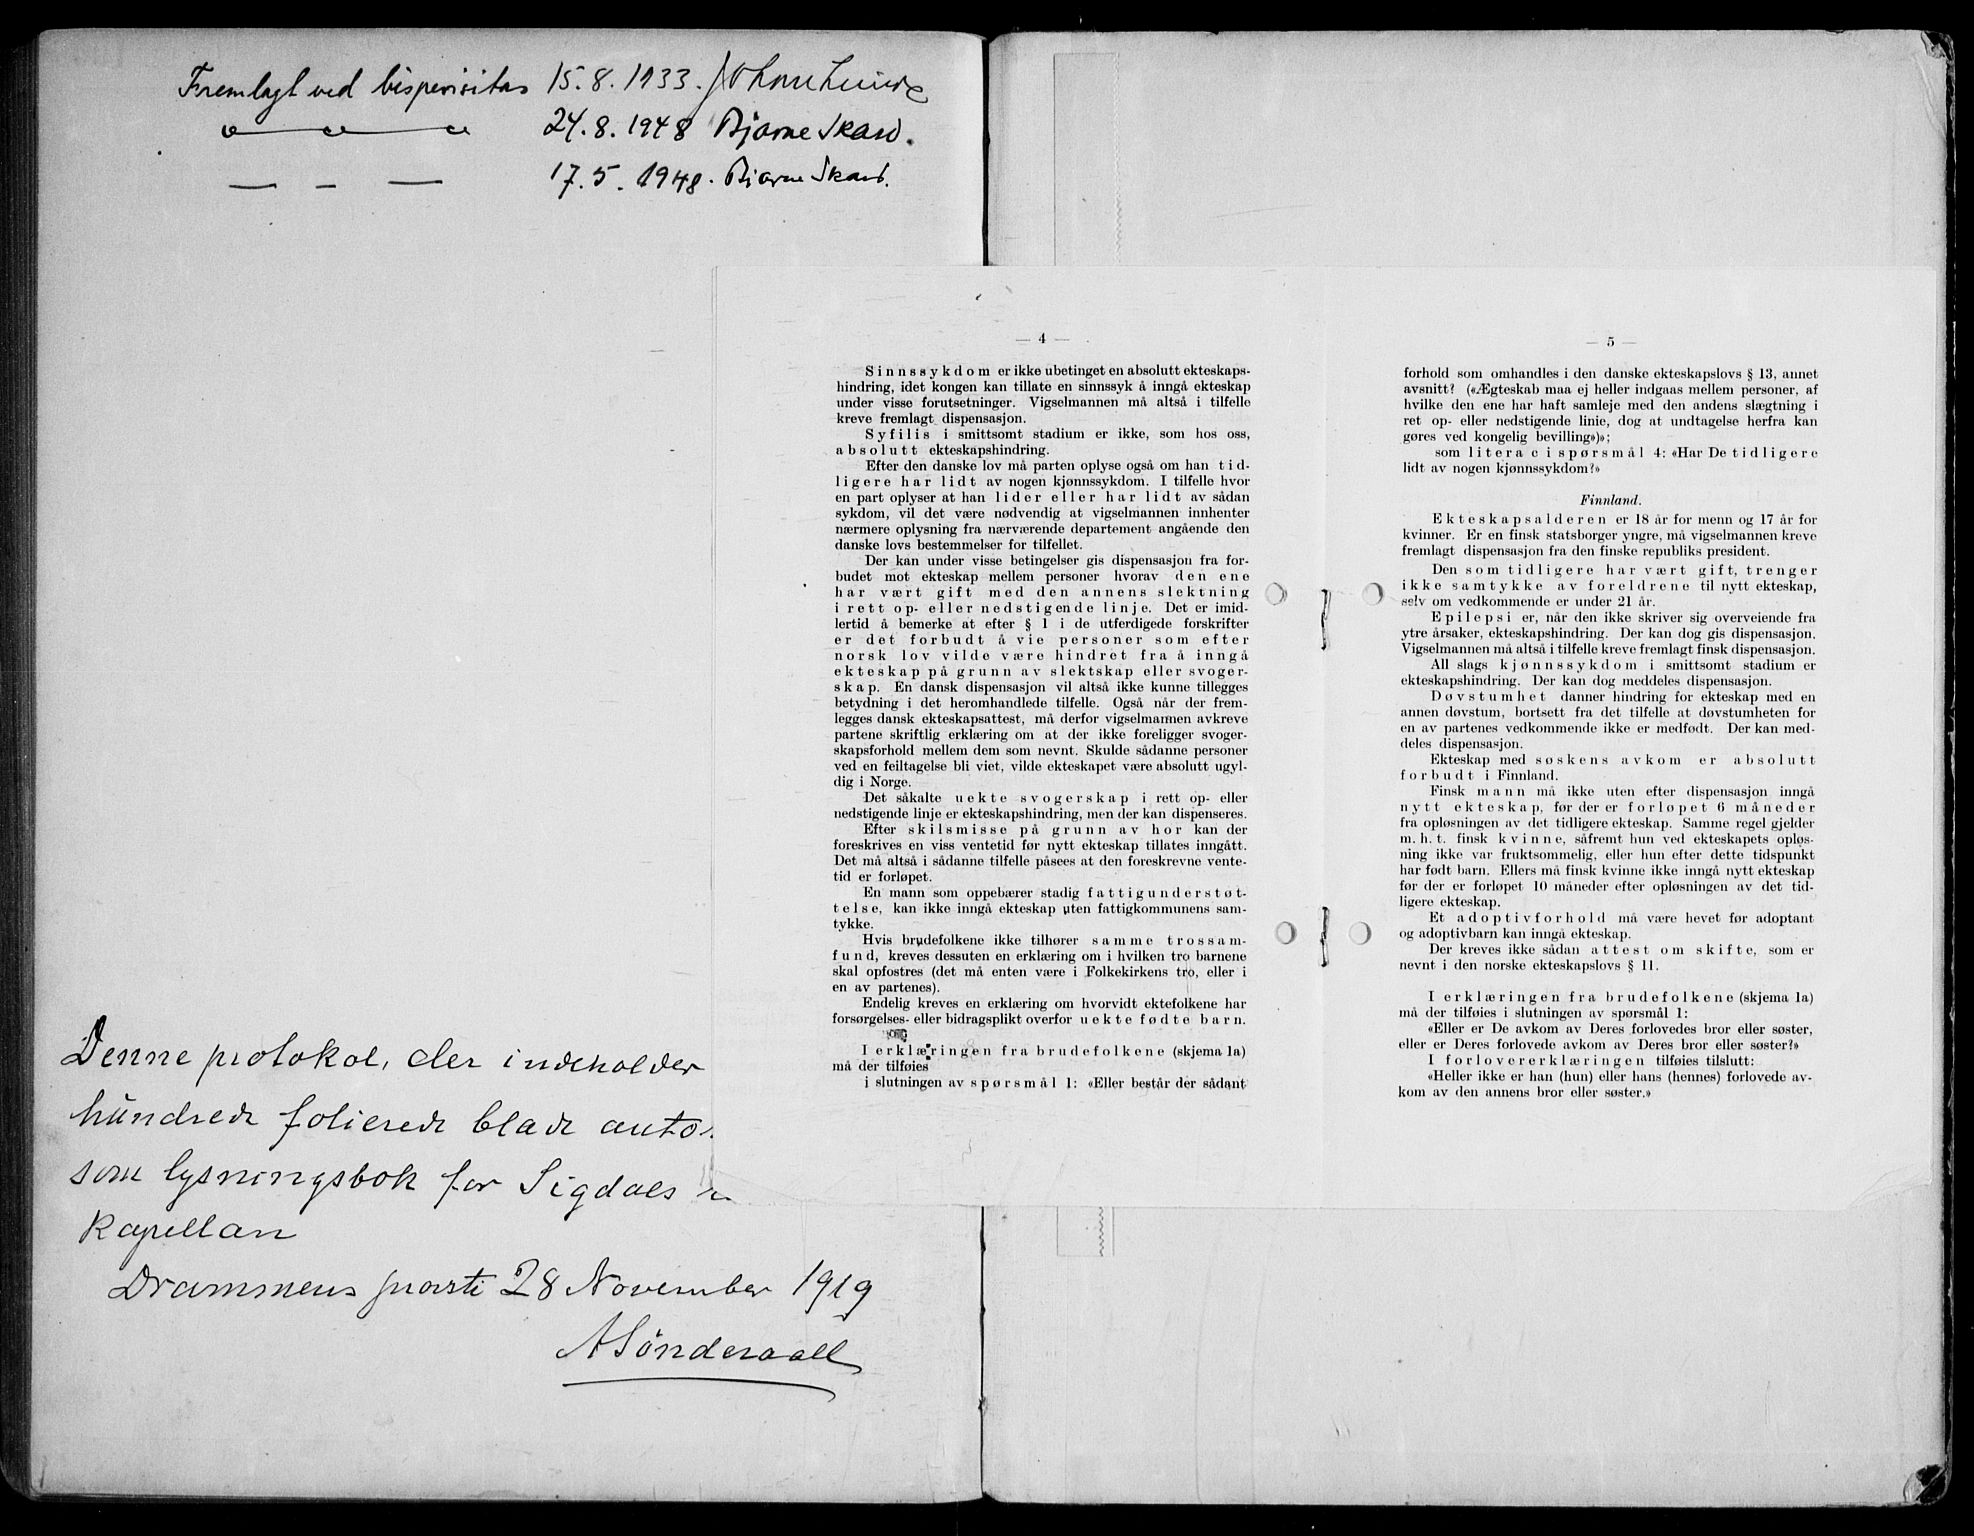 Fremlagt ved bispevisitas 15.8.1933. Johan Lunde
24.8.1948 Bjarne Skard.
— – — 17.5.1948. Bjarne Skard.
Denne protokol, der indeholder
hundrede folierede blade auto
som lysningsbok for Sigdals
Kapellan
Drammens prosti 28 November 1919
ASönderaall
— 4 —
Sinnssykdom er ikke ubetinget en absolutt ekteskaps-
hindring, idet kongen kan tillate en sinnssyk å inngå ekteskap
under visse forutsetninger. Vigselmannen må altså i tilfelle
kreve fremlagt dispensasjon.
Syfilis i smittsomt stadium er ikke, som hos oss,
absolutt ekteskapshindring.
Efter den danske lov må parten oplyse også om han tid-
ligere har lidt av nogen kjønnssykdom. I tilfelle hvor
en part oplyser at han lider eller har lidt av sådan
sykdom, vil det være nødvendig at vigselmannen innhenter
nærmere oplysning fra nærværende departement angående den
danske lovs bestemmelser for tilfellet.
Der kan under visse betingelser gis dispensasjon fra for-
budet mot ekteskap mellem personer hvorav den ene
har vært gift med den annens slektning
i rett op- eller nedstigende linje. Det er imid-
lertid å bemerke at efter § 1 i de utferdigede forskrifter
er det forbudt å vie personer som efter
norsk lov vilde være hindret fra å inngå
ekteskap på grunn av slektskap eller svoger-
skap. En dansk dispensasjon vil altså ikke kunne tillegges
betydning i det heromhandlede tilfelle. Også når der frem-
legges dansk ekteskapsattest, må derfor vigselmannen avkreve
partene skriftlig erklæring om at der ikke foreligger svoger-
skapsforhold mellem dem som nevnt. Skulde sådanne personer
ved en feiltagelse bli viet, vilde ekteskapet være absolutt ugyl-
dig i Norge.
Det såkalte uekte svogerskap i rett op- eller
nedstigende linje er ekteskapshindring, men der kan dispenseres.
Efter skilsmisse på grunn av hor kan der
foreskrives en viss ventetid før nytt ekteskap tillates inngått.
Det må altså i sådanne tilfelle påsees at den foreskrevne vente-
tid er forløpet.
En mann som oppebærer stadig fattigunderstøt-
telse, kan ikke inngå ekteskap uten fattigkommunens sam-
tykke.
Hvis brudefolkene ikke tilhører samme trossam-
fund, kreves dessuten en erklæring om i hvilken tro barnene
skal opfostres (det må enten være i Folkekirkens tro, eller i
en av partenes).
Endelig kreves en erklæring om hvorvidt ektefolkene har
forsørgelses- eller bidragsplikt overfor uekte fødte barn.
I erklæringen fra brudefolkene (skjema 1a)
må der tilføies
i slutningen av spørsmål 1: «Eller består der sådant
— 5 —
forhold som omhandles i den danske ekteskapslovs § 13, annet
avsnitt? («Ægteskab maa ej heller indgaas mellem personer, af
hvilke den ene har haft samleje med den andens slægtning i
ret op- eller nedstigende linie, dog at undtagelse herfra kan
gøres ved kongelig bevilling»)»;
som litera c i spørsmål 4: «Har De tidligere
lidt av nogen kjønnssykdom?»
Finnland.
Ekteskapsalderen er 18 år for menn og 17 år for
kvinner. Er en finsk statsborger yngre, må vigselmannen kreve
fremlagt dispensasjon fra den finske republiks president.
Den som tidligere har vært gift, trenger
ikke samtykke av foreldrene til nytt ekteskap,
selv om vedkommende er under 21 år.
Epilepsi er, når den ikke skriver sig overveiende fra
ytre årsaker, ekteskapshindring. Der kan dog gis dispensasjon.
Vigselmannen må altså i tilfelle kreve fremlagt finsk dispensasjon.
All slags kjønnssykdom i smittsomt stadium er
ekteskapshindring. Der kan dog meddeles dispensasjon.
Døvstumhet danner hindring for ekteskap med en
annen døvstum, bortsett fra det tilfelle at døvstumheten for
en av partenes vedkommende ikke er medfødt. Der kan med-
deles dispensasjon.
Ekteskap med søskens avkom er absolutt
forbudt i Finnland.
Finsk mann må ikke uten efter dispensasjon inngå
nytt ekteskap, før der er forløpet 6 måneder
fra opløsningen av det tidligere ekteskap. Samme regel gjelder
m. h. t. finsk kvinne, såfremt hun ved ekteskapets opløs-
ning ikke var fruktsommelig, eller hun efter dette tidspunkt
har født barn. Ellers må finsk kvinne ikke inngå nytt ekteskap
før der er forløpet 10 måneder efter opløsningen av det tid-
ligere ekteskap.
Et adoptivforhold må være hevet før adoptant
og adoptivbarn kan inngå ekteskap.
Der kreves ikke sådan attest om skifte, som er
nevnt i den norske ekteskapslovs § 11.
I erklæringen fra brudefolkene (skjema 1a)
må der tilføies i slutningen av spørsmål 1:
«Eller er De avkom av Deres forlovedes bror eller søster,
eller er Deres forlovede avkom av Deres bror eller søster?»
I forlovererklæringen tilføies tilslutt:
«Heller ikke er han (hun) eller hans (hennes) forlovede av-
kom av den annens bror eller søster.»